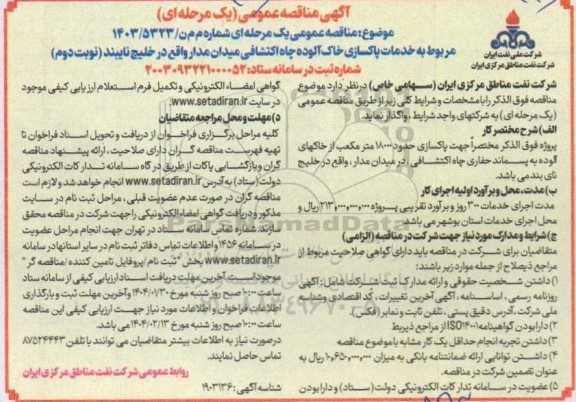 آگهی مناقصه عمومی (یک مرحله ای)
موضوع: مناقصه عمومی یک مرحله ای شماره م م ن/۱۴۰۳/۵۳۲۳
مربوط به خدمات پاکسازی خاک آلوده چاه اکتشافی میدان مدار واقع در خلیج نایبند (نوبت دوم)
شماره ثبت در سامانه ستاد: ۲۰۰۳۰۹۳۲۲۱۰۰۰۰۵۲
شرکت ملی نفت ایران
شرکت نفت مناطق مرکزی ایران
شرکت نفت مناطق مرکزی ایران (سهامی خاص) در نظر دارد موضوع
مناقصه فوق الذکر را با مشخصات و شرایط کلی زیر از طریق مناقصه عمومی
(یک مرحله ای) به شرکتهای واجد شرایط، واگذار نماید.
الف) شرح مختصر کار
پروژه فوق الذکر مختصراً جهت پاکسازی حدود ۱۸۰۰۰ متر مکعب از خاکهای
آلوده به پسماند حفاری چاه اکتشافی، در میدان مدار، واقع در خلیج
نای بند می باشد.
ب) مدت، محل و برآورد اولیه اجرای کار
مدت اجرای خدمات ۳۰۰ روز و برآورد تقریبی پروژه ۲۱۳,۰۰۰,۰۰۰,۰۰۰ ریال و
محل اجرای خدمات استان بوشهر می باشد.
ج) شرایط و مدارک مورد نیاز جهت شرکت در مناقصه (الزامی)
متقاضیان برای شرکت در مناقصه باید دارای گواهی صلاحیت مربوط از
مراجع ذیصلاح از جمله موارد زیر باشند:
۱) داشتن شخصیت حقوقی و ارائه مدارک ثبت شرکت شامل: آگهی
روزنامه رسمی، اساسنامه، آگهی آخرین تغییرات، کد اقتصادی و شناسه
ملی شرکت، آدرس دقیق پستی، تلفن ثابت و نمابر (فکس).
۲) دارا بودن گواهینامه ISO۱۴۰۰۱ از مراجع ذیربط
۳) داشتن تجربه انجام حداقل یک کار مشابه با موضوع مناقصه
۴) داشتن توانایی ارائه ضمانتنامه بانکی به میزان ۱۰,۶۵۰,۰۰۰,۰۰۰ ریال به
عنوان تضمین شرکت در مناقصه.
۵) عضویت در سامانه تدارکات الکترونیکی دولت (ستاد) و دارا بودن
گواهی امضاء الکترونیکی و تکمیل فرم استعلام ارزیابی کیفی موجود
در سایت www.setadiran.ir
د) مهلت و محل مراجعه متقاضیان
کلیه مراحل برگزاری فراخوان از دریافت و تحویل اسناد فراخوان تا
تهیه فهرست مناقصه گران دارای صلاحیت، ارائه پیشنهاد مناقصه
گران و بازگشایی پاکات از طریق درگاه سامانه تدارکات الکترونیکی
دولت (ستاد) به آدرس www.setadiran.ir انجام خواهد شد و لازم است
مناقصه گران در صورت عدم عضویت قبلی، مراحل ثبت نام در سایت
مذکور و دریافت گواهی امضاء الکترونیکی را جهت شرکت در مناقصه محقق
سازند. شماره تماس سامانه ستاد در تهران جهت انجام مراحل عضویت
در سامانه ۱۴۵۶ و اطلاعات تماس دفاتر ثبت نام در سایر استانها در سامانه
www.setadiran.ir بخش "ثبت نام/پروفایل تامین کننده/مناقصه گر"
موجود است. آخرین مهلت دریافت اسناد ارزیابی کیفی از سامانه
ساعت ۱۰:۰۰ صبح روز شنبه مورخ ۱۴۰۴/۰۱/۳۰ و آخرین مهلت ثبت و بارگذاری
اطلاعات فراخوان و اطلاعات مورد نیاز جهت ارزیابی کیفی این مناقصه
ساعت ۱۰:۰۰ صبح روز شنبه مورخ ۱۴۰۴/۰۲/۱۳ می باشد.
در صورت نیاز به اطلاعات بیشتر متقاضیان می توانند با تلفن ۸۷۵۲۴۴۴۳
تماس حاصل نمایند.
روابط عمومی شرکت نفت مناطق مرکزی ایران
شناسه آگهی: ۱۹۰۳۱۳۶